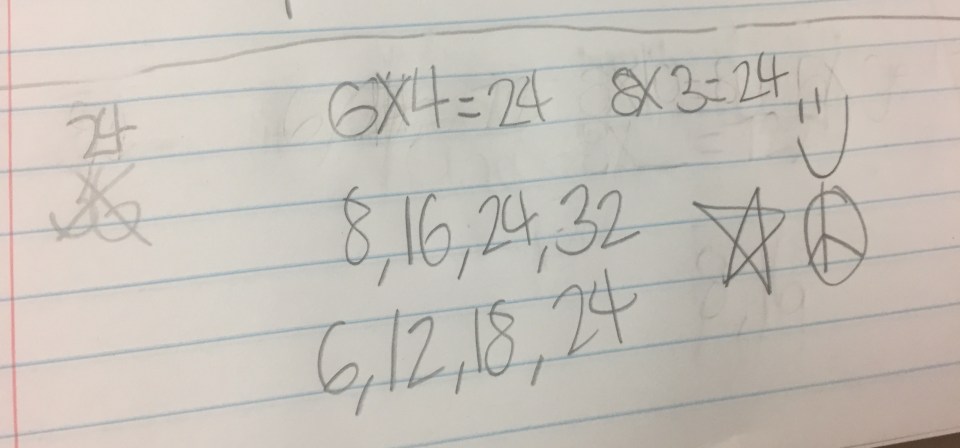 24 6X4=24 8X3=24
8,16,24,32
6,12,18,24